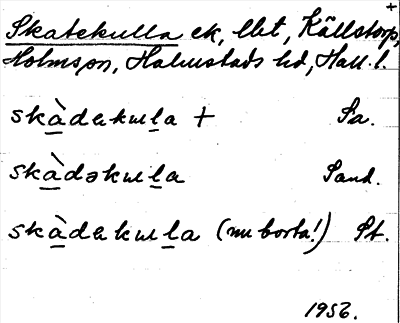 +
Skatekulla ek, llet, Källstorp,
Holms sn, Halmstads hd, Hall. l.
skàdekulla + Pa.
skàdəkulla Sand.
skàdekulla (nu borta!) St.
1956.